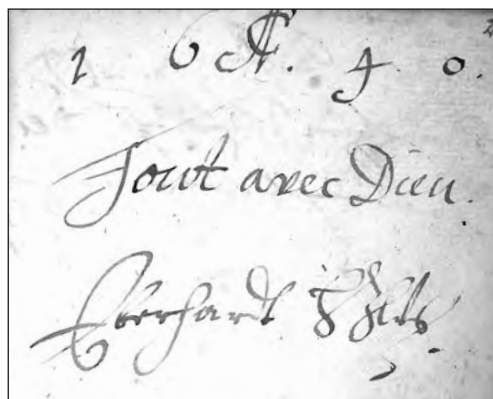 1 6 A. 4 0.
Tout avec Dieu.
Eberhardt